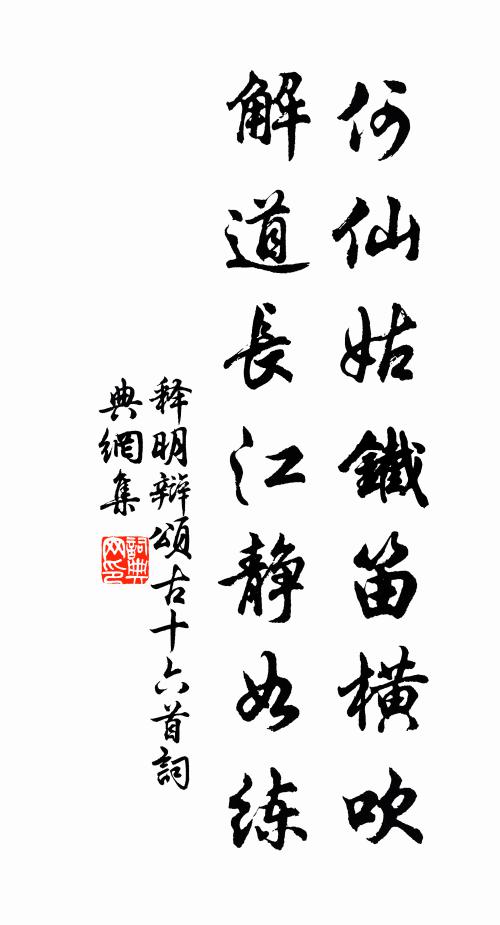 何仙姑鐵笛橫吹
解道長江静如练
释明辯頌古十六首詞
典網集
詞典
网印